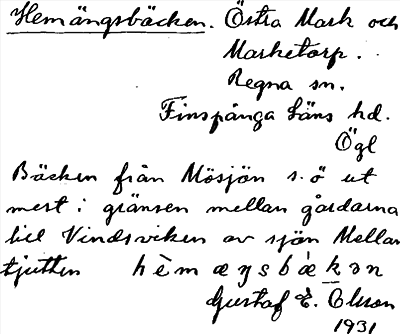 Hemängsbäcken. Östra Mark och
Marketorp.
Regna sn.
Finspånga Läns hd.
Ögl
Bäcken från Mösjön s.ö ut
mest i gränsen mellan gårdarna
till Vindsviken av sjön Mellan
tjutten hèmæŋsbækən
Gustaf E. Olsson
1931